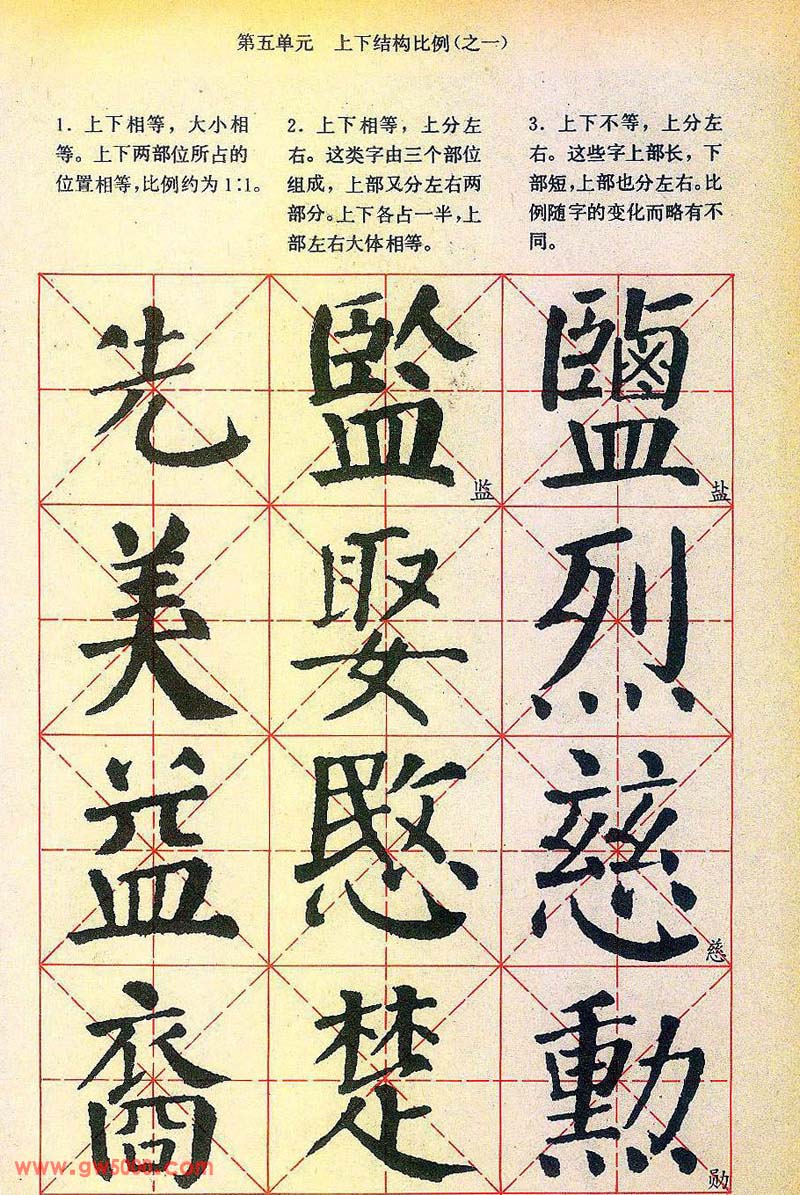 第五单元 上下结构比例（之一）
1. 上下相等，大小相
等。上下两部位所占的
位置相等，比例约为1∶1。
2. 上下相等，上分左
右。这类字由三个部位
组成，上部又分左右两
部分。上下各占一半，上
部左右大体相等。
3. 上下不等，上分左
右。这些字上部长，下
部短，上部也分左右。比
例随字的变化而略有不
同。
先 監 监 鹽 盐
美 娶 烈
益 愍 慈 慈
裔 楚 勳 勋
www.gw5000.com